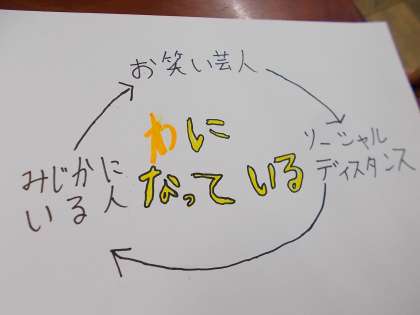 お笑い芸人
わに
なっている
ソーシャル
ディスタンス
みじかに
いる人